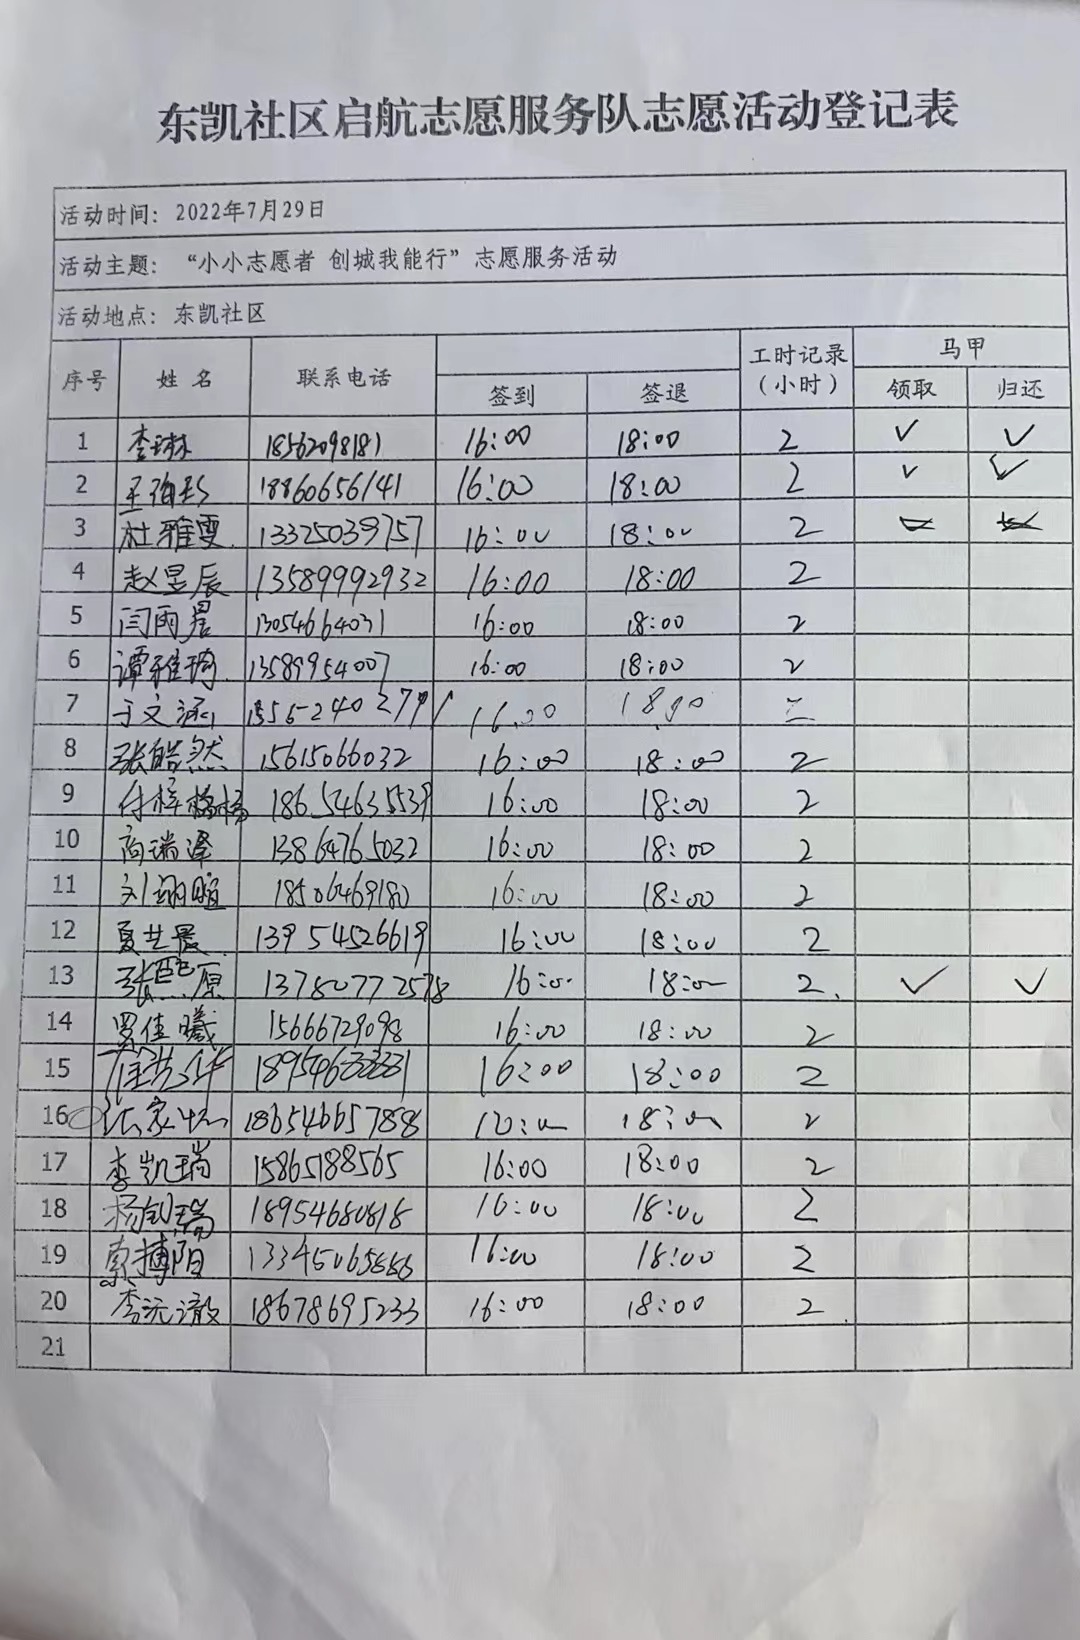 东凯社区启航志愿服务队志愿活动登记表
活动时间：2022年7月29日
活动主题：“小小志愿者 创城我能行”志愿服务活动
活动地点：东凯社区
序号 姓名 联系电话 签到 签退 工时记录（小时） 马甲 领取 归还
1 李琳 18562098181 16:00 18:00 2 ✓ ✓
2 18860656141 16:00 18:00 2 ✓ ✓
3 杜雅雯 13325039757 16:00 18:00 2
4 赵昱辰 13589992932 16:00 18:00 2
5 闫雨晨 13054664031 16:00 18:00 2
6 谭雅琦 13589954007 16:00 18:00 2
7 于文涵 16:00 18:00 2
8 张皓然 15615066032 16:00 18:00 2
9 付梓杨 18654635539 16:00 18:00 2
10 商瑞泽 13864765032 16:00 18:00 2
11 18506469180 16:00 18:00 2
12 夏艺晨 13954526619 16:00 18:00 2
13 张熙原 16:00 18:00 2 ✓ ✓
14 罗佳曦 15666729098 16:00 18:00 2
15 16:00 18:00 2
16 18:00 2
17 李凯瑞 15865188565 16:00 18:00 2
18 18954680818 16:00 18:00 2
19 索搏阳 16:00 18:00 2
20 李沅澈 18678695233 16:00 18:00 2
21